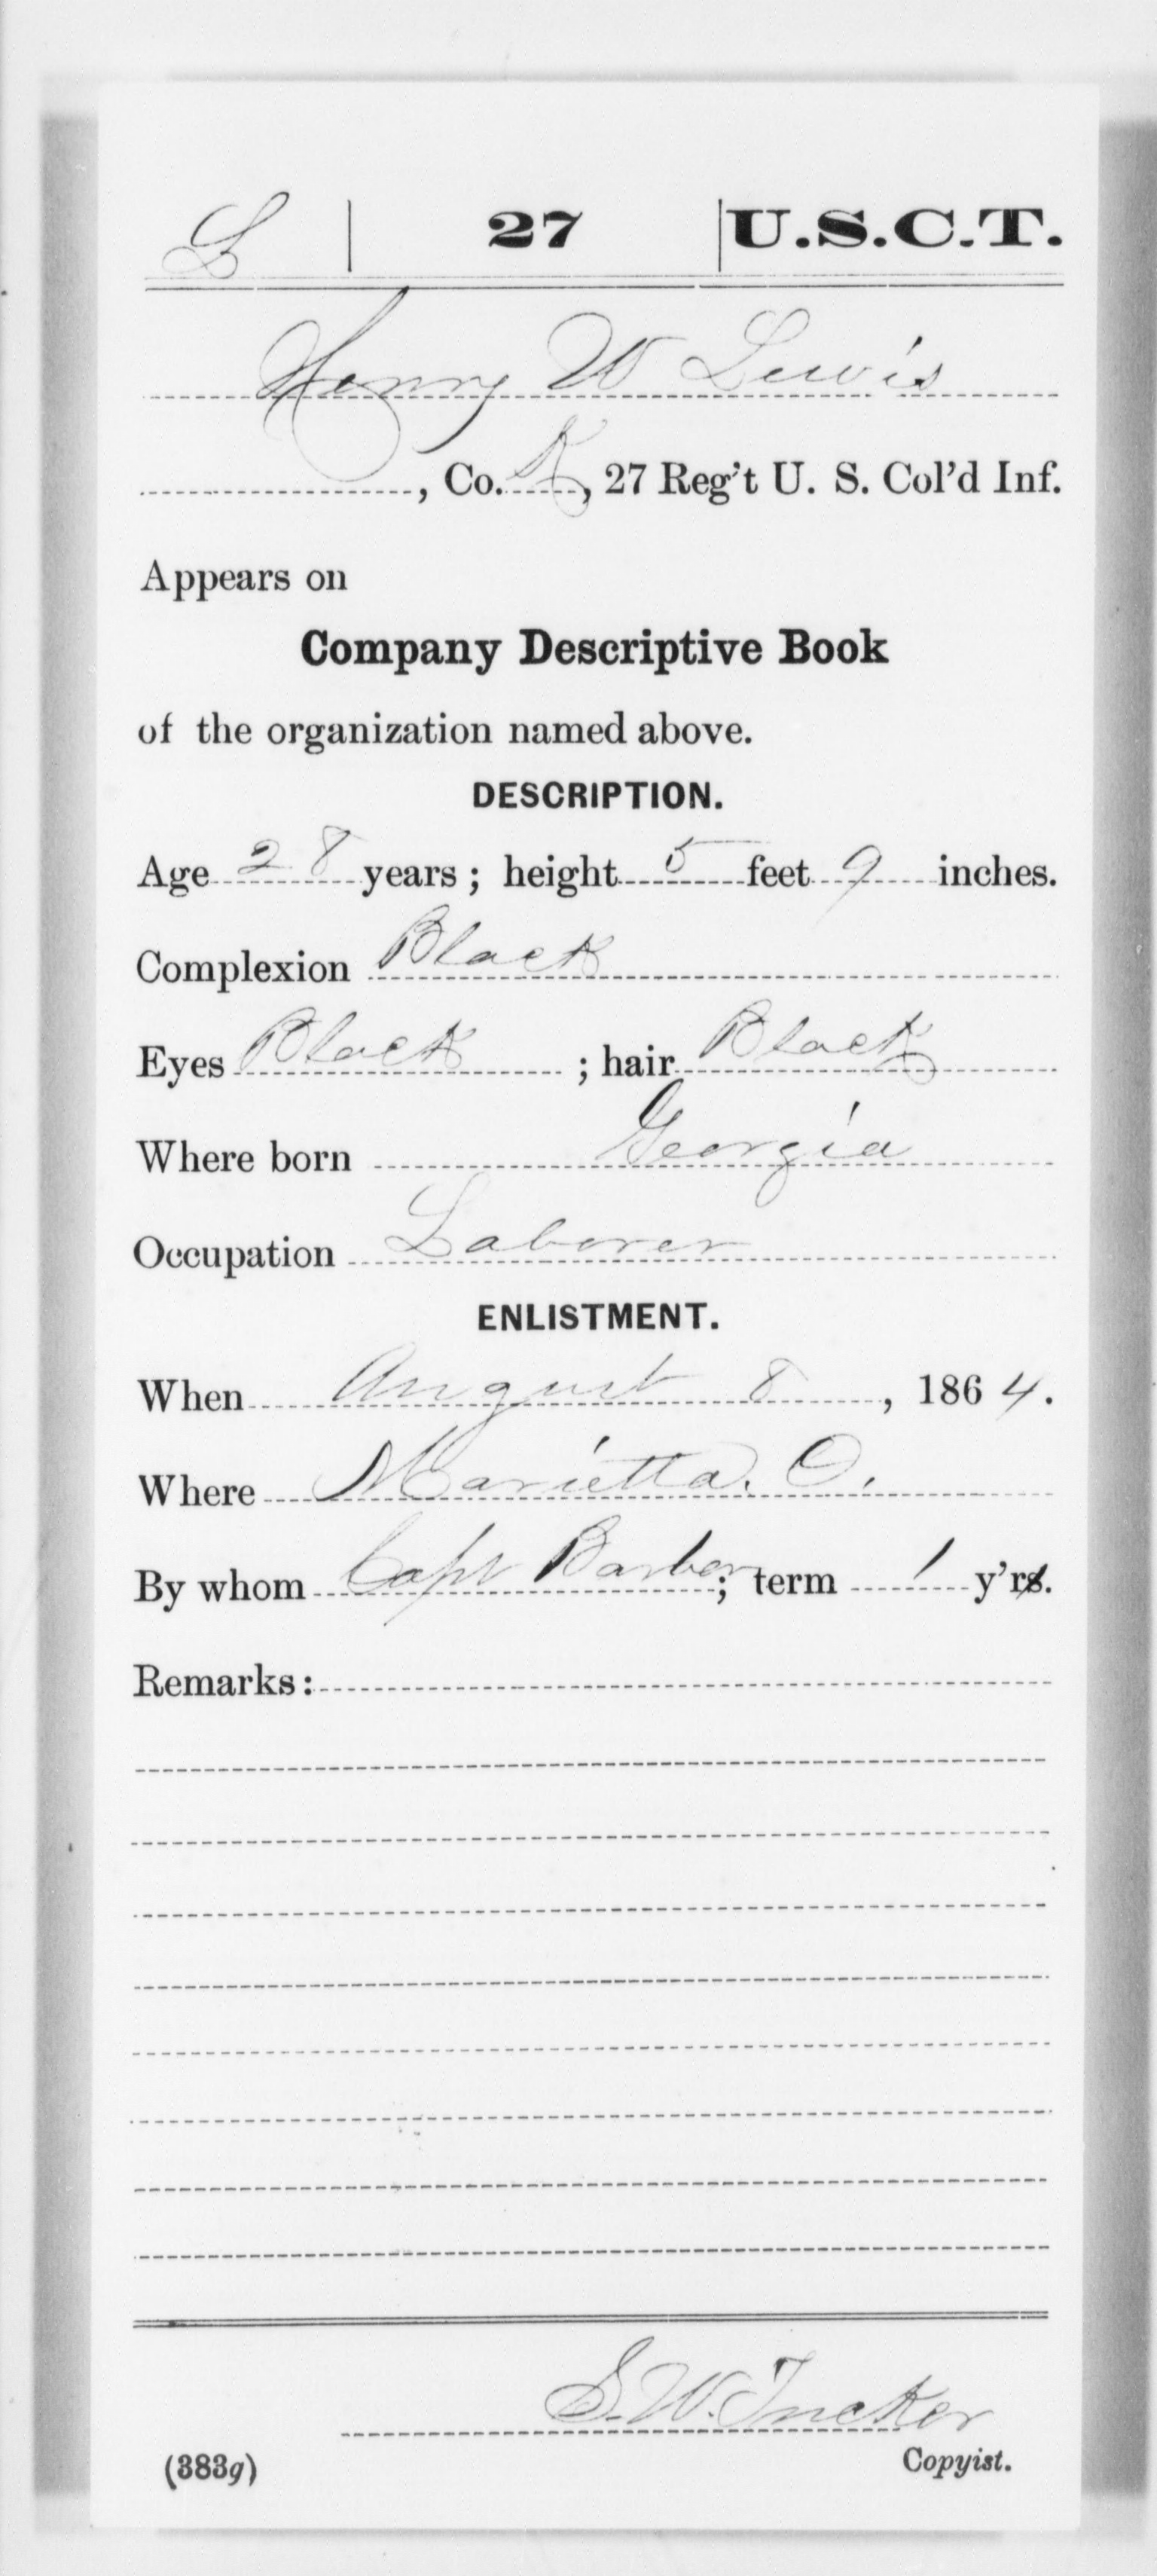 L | 27 | U.S.C.T.
Henry W Lewis
, Co. K, 27 Reg't U. S. Col'd Inf.
Appears on
Company Descriptive Book
of the organization named above.
DESCRIPTION.
Age 28 years; height 5 feet 9 inches.
Complexion Black
Eyes Black ; hair Black
Where born Georgia
Occupation Laborer
ENLISTMENT.
When August 8, 1864.
Where Marietta. O.
By whom Capt Barber; term 1 y'rs.
Remarks:
S. W. Tucker
(383g) Copyist.